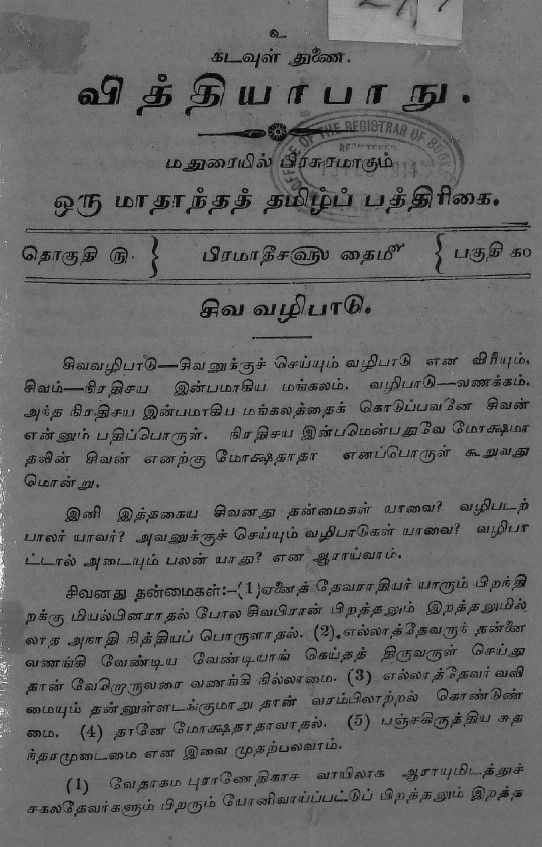 உ
கடவுள் துணை.
வித்தியாபாநு.
OFFICE OF THE REGISTRAR OF BOOKS
REGISTERED
1914
மதுரையில் பிரசுரமாகும்
ஒரு மாதாந்தத் தமிழ்ப் பத்திரிகை.
தொகுதி ௫. } பிரமாதீசவு௵ தைமீ { பகுதி ௧௦
சிவ வழிபாடு.
சிவவழிபாடு—சிவனுக்குச் செய்யும் வழிபாடு என விரியும்.
சிவம்—நிரதிசய இன்பமாகிய மங்கலம். வழிபாடு—வணக்கம்.
அந்த நிரதிசய இன்பமாகிய மங்கலத்தைக் கொடுப்பவனே சிவன்
என்னும் பதிப்பொருள். நிரதிசய இன்பமென்பதுவே மோக்ஷமா
தலின் சிவன் எனற்கு மோக்ஷதாதா எனப்பொருள் கூறுவது
மொன்று.
இனி இத்தகைய சிவனது தன்மைகள் யாவை? வழிபடற்
பாலர் யாவர்? அவனுக்குச் செய்யும் வழிபாடுகள் யாவை? வழிபா
ட்டால் அடையும் பலன் யாது? என ஆராய்வாம்.
சிவனது தன்மைகள்:—(1) ஏனைத் தேவராதியர் யாரும் பிறந்தி
றக்கு மியல்பினராதல் போல சிவபிரான் பிறத்தலும் இறத்தலுமில்
லாத அநாதி நித்தியப் பொருளாதல். (2) எல்லாத்தேவருந் தன்னை
வணங்கி வேண்டிய வேண்டியாங் கெய்தத் திருவருள் செய்து
தான் வேறொருவரை வணங்கி நில்லாமை. (3) எல்லாத்தேவர் வலி
மையும் தன்னுள்ளடங்குமாறு தான் வரம்பிலாற்றல் கொண்டுண்
மை. (4) தானே மோக்ஷதாதாவாதல். (5) பஞ்சகிருத்திய சுத
ந்தரமுடைமை என இவை முதற்பலவாம்.
(1) வேதாகம புராணேதிகாச வாயிலாக ஆராயுமிடத்துச்
சகலதேவர்களும் பிறரும் யோனிவாய்ப்பட்டுப் பிறத்தலும் இறத்த